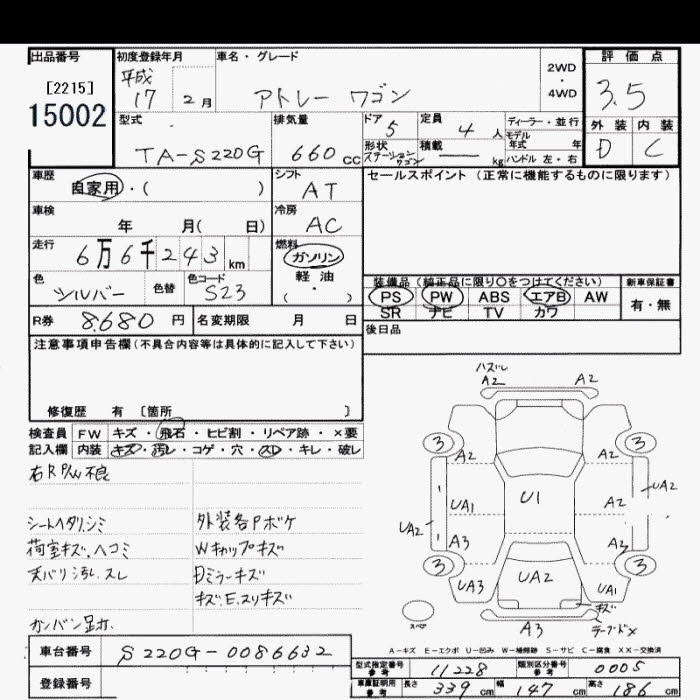 出品番号
[2215]
15002
初度登録年月
平成
17 2月
車名・グレード
アトレー ワゴン
2WD
・
4WD
評価点
3.5
外装 内装
D C
型式
TA-S220G
排気量
660 cc
ドア
5
定員
4 人
ディーラー・並行
モデル
年式 年
ハンドル 左・右
形状
ステーションワゴン
積載
— kg
車歴
自家用・( )
シフト
AT
セールスポイント (正常に機能するものに限ります)
車検
年 月( 日)
冷房
AC
走行
6万6千243 km
燃料
ガソリン
軽油
( ・ )
色
シルバー
色替
色コード
S23
装備品(純正品に限り○をつけてください)
PS PW ABS エアB AW
SR ナビ TV カワ
新車保証書
有・無
R券 8.680 円
名変期限 月 日
後日品
注意事項申告欄(不具合内容等は具体的に記入して下さい)
修復歴 有 〔箇所 〕
検査員 FW キズ・飛石・ヒビ割・リペア跡・×要
記入欄 内装 キズ・汚レ・コゲ・穴・スレ・キレ・破レ
右R P/W不良
シートヘタリ.シミ
荷室キズ、ヘコミ
天バリ汚レ.スレ
カンバン跡
外装各Pボケ
Wキャップキズ
Dミラーキズ
キズ.E.スリキズ
ハズレ
A2 A2
3 3
A2 A2
UA1 U1 A2 UA2
UA2
A3 A3
3 3
UA3 UA2 UA1
キズ
スペア
A3
テープドメ
A－キズ E－エクボ U－凹み W－補修跡 S－サビ C－腐食 XX－交換済
車台番号 S220G-0086632
登録番号
型式指定番号
参考
11228
類別区分番号
参考
0005
車庫証明用
参考
長さ 339 cm 幅 147 cm 高さ 186 cm